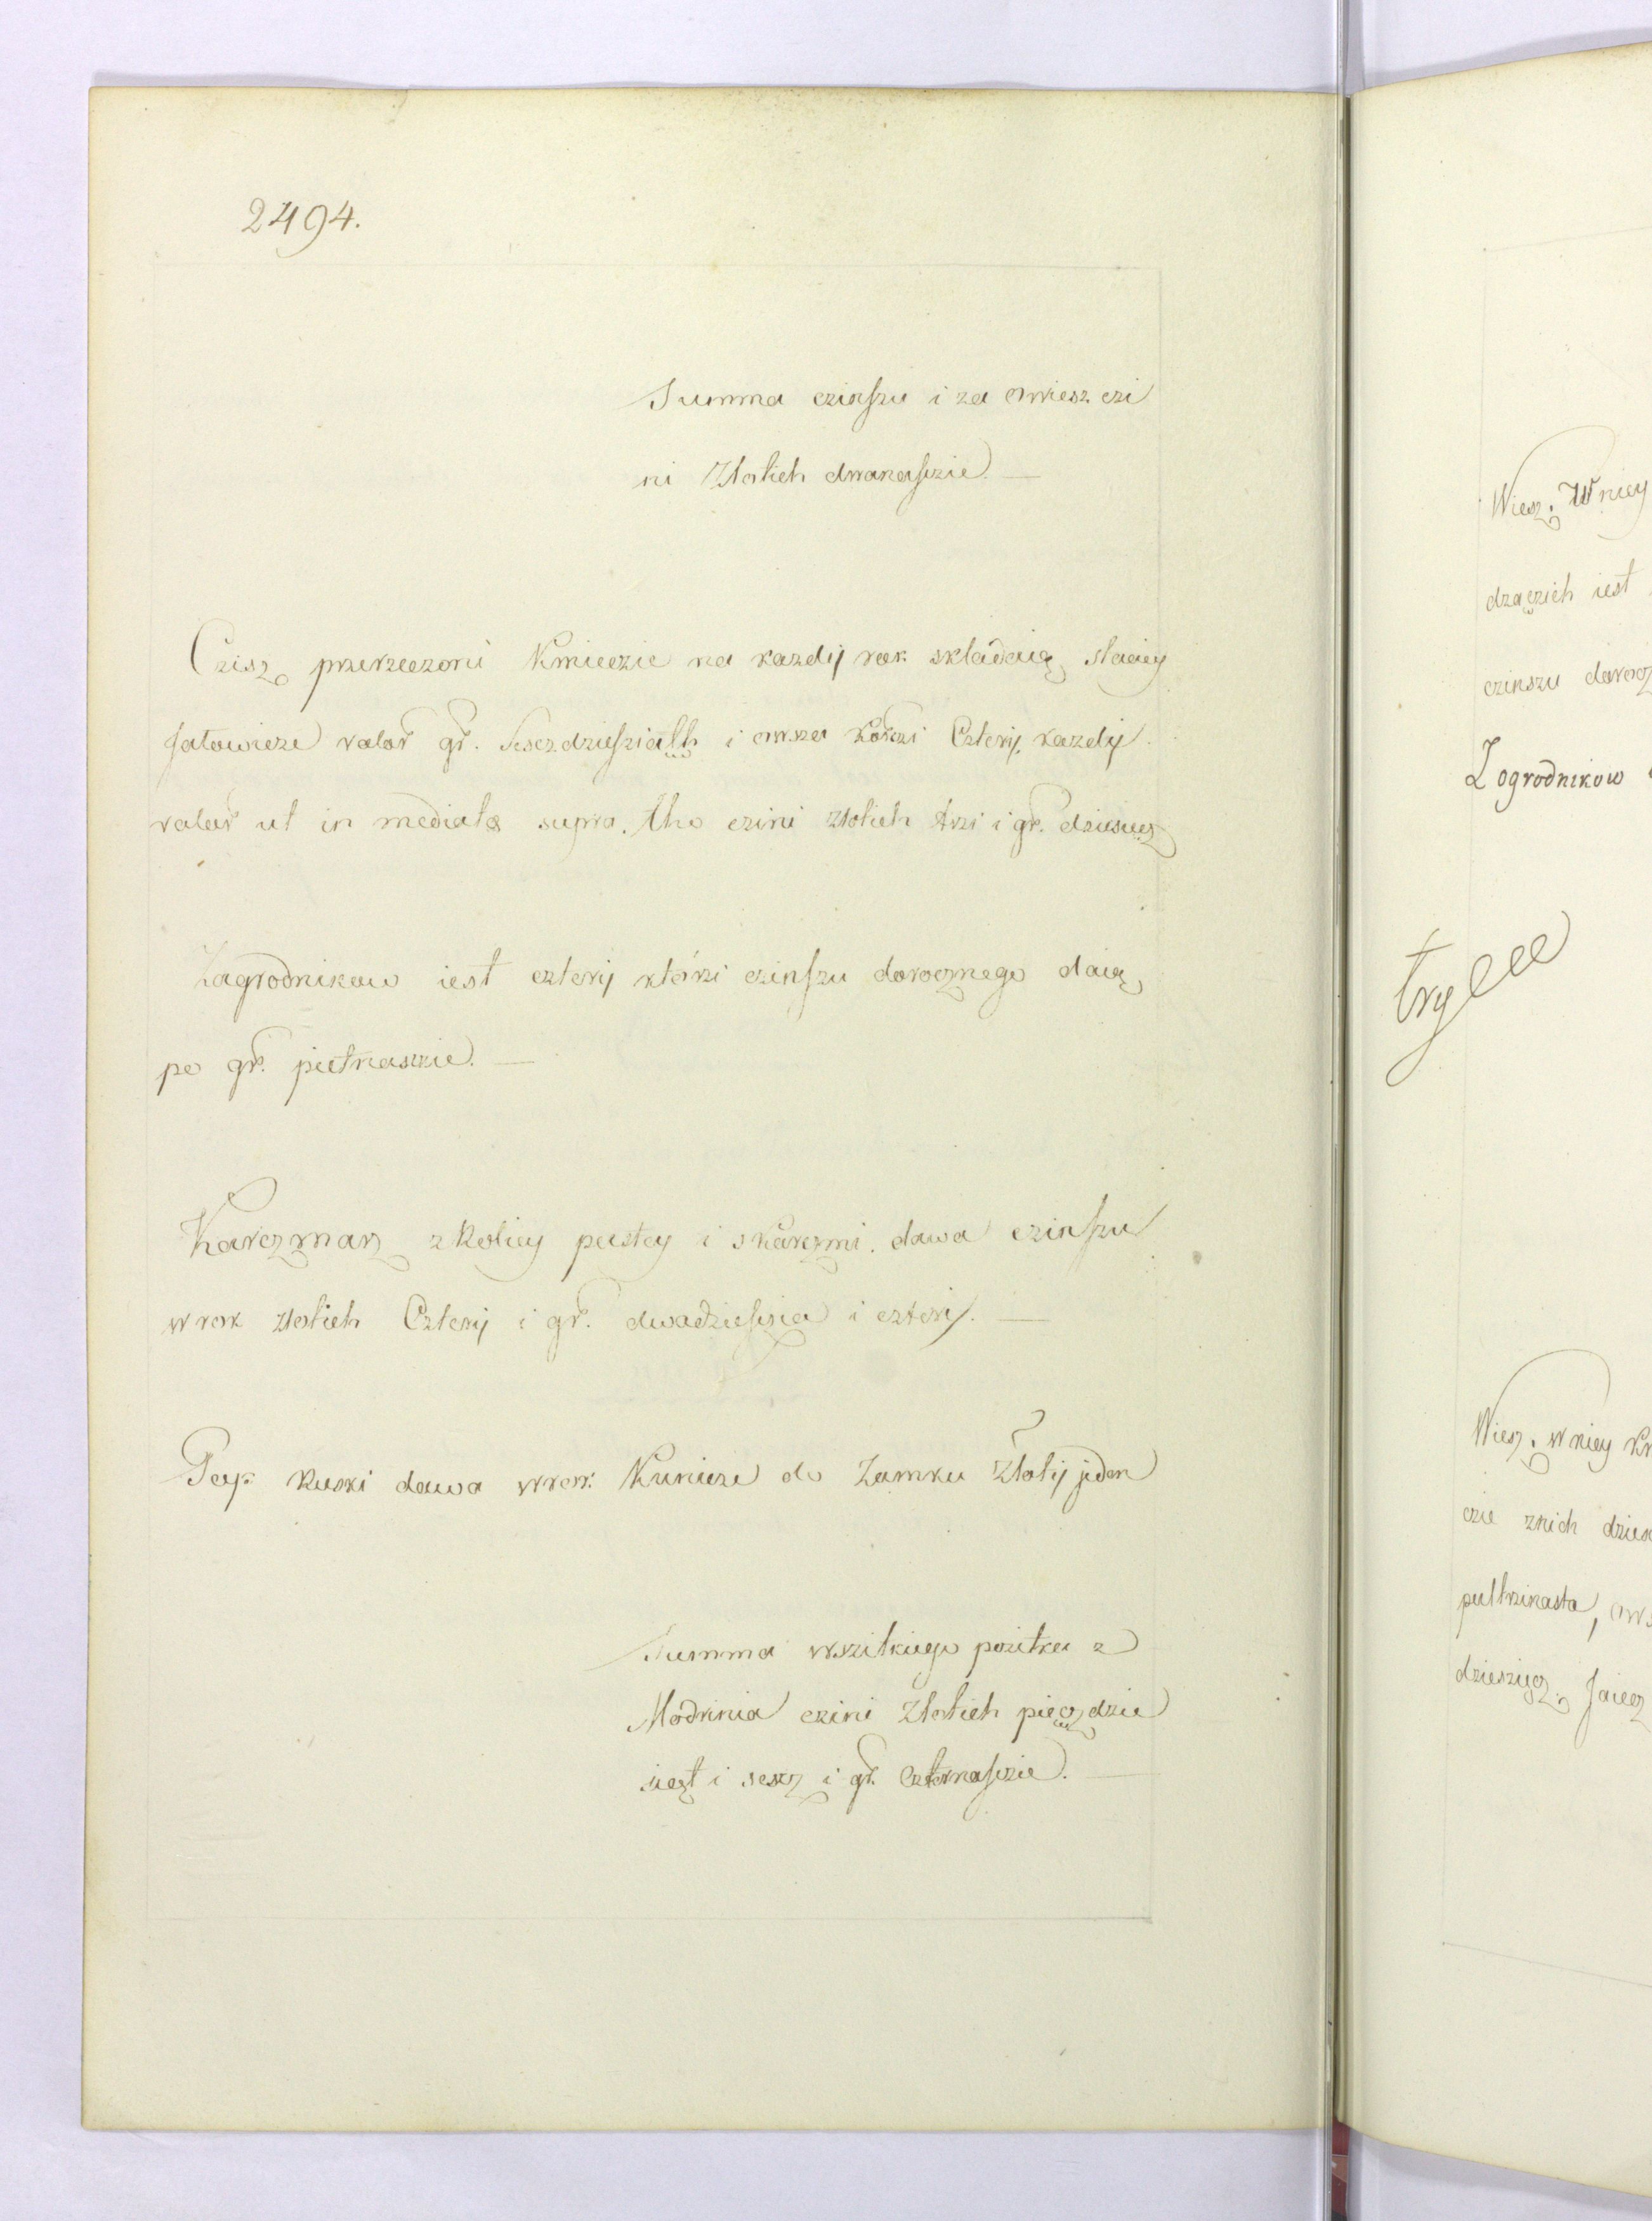 2494.
Summa czinszu i za owiesz czi
ni Złotich dwanaszcie.
Czisz przerzeczoni Kmieczie na kazdij rok składaią staciey
Jałowicze valor gr. Sesczdziesziąth i owsza korczi Czterij, kazdij
valor ut in mediata supra. Tho czini złotich trzi i gr. dziesięcz
Zagrodnikow iest czterij ktorzi czinszu dorocznego daią
po gr. piętnasczie.
Karczmarz z Roliey pustey i s karczmi. dawa czinszu
w rok złotich Czterij i gr. dwadzieszcia i czterij.
Pop Ruski dawa w rok Kunicze do Zamku Złotij jeden
Summa wszitkiego pozitku z
Modrinia czini Złotich pięczdzie
siąt i sescz i gr. czternaszcie.
Wiesz. W niey
dzączich iest
czinszu darocz
Zogrodnikow
Wiesz. w niey Km
czie znich dzies
pułtrzinasta, ows
dzieszięcz. Jaiecz